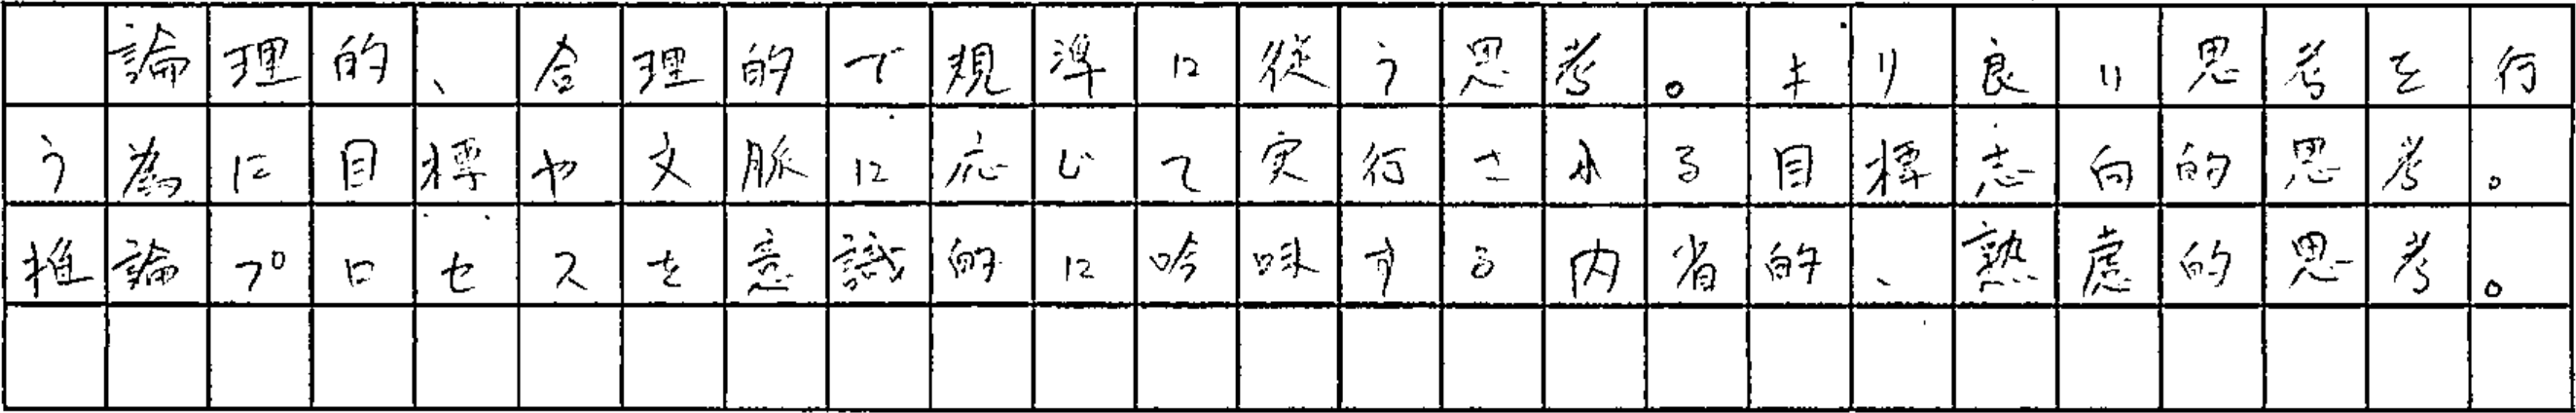 論理的、合理的で規準に従う思考。より良い思考を行
う為に目標や文脈に応じて実行される目標志向的思考。
推論プロセスを意識的に吟味する内省的、熟慮的思考。